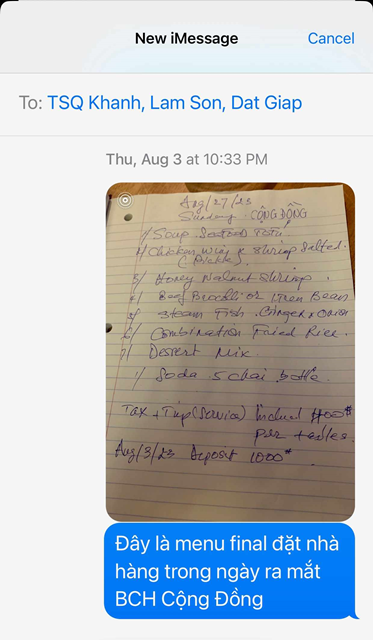 New iMessage
Cancel
To: TSQ Khanh, Lam Son, Dat Giap
Thu, Aug 3 at 10:33 PM
Aug/27/23
Sunday. CỘNG ĐỒNG
1/ Soup Seafood
2/ Chicken Wing & Shrimp Salted.
3/ Honey Walnut Shrimp.
4/ Beef Brocolli or Green Bean
5/ Steam Fish. Ginger & Onion
6/ Combination Fried Rice.
7/ Dessert Mix.
1/ Soda 5 chai
Tax + Tip (Service) Includ 400#
per tables.
Aug/3/23 Deposit 1000#
Đây là menu final đặt nhà
hàng trong ngày ra mắt
BCH Cộng Đồng